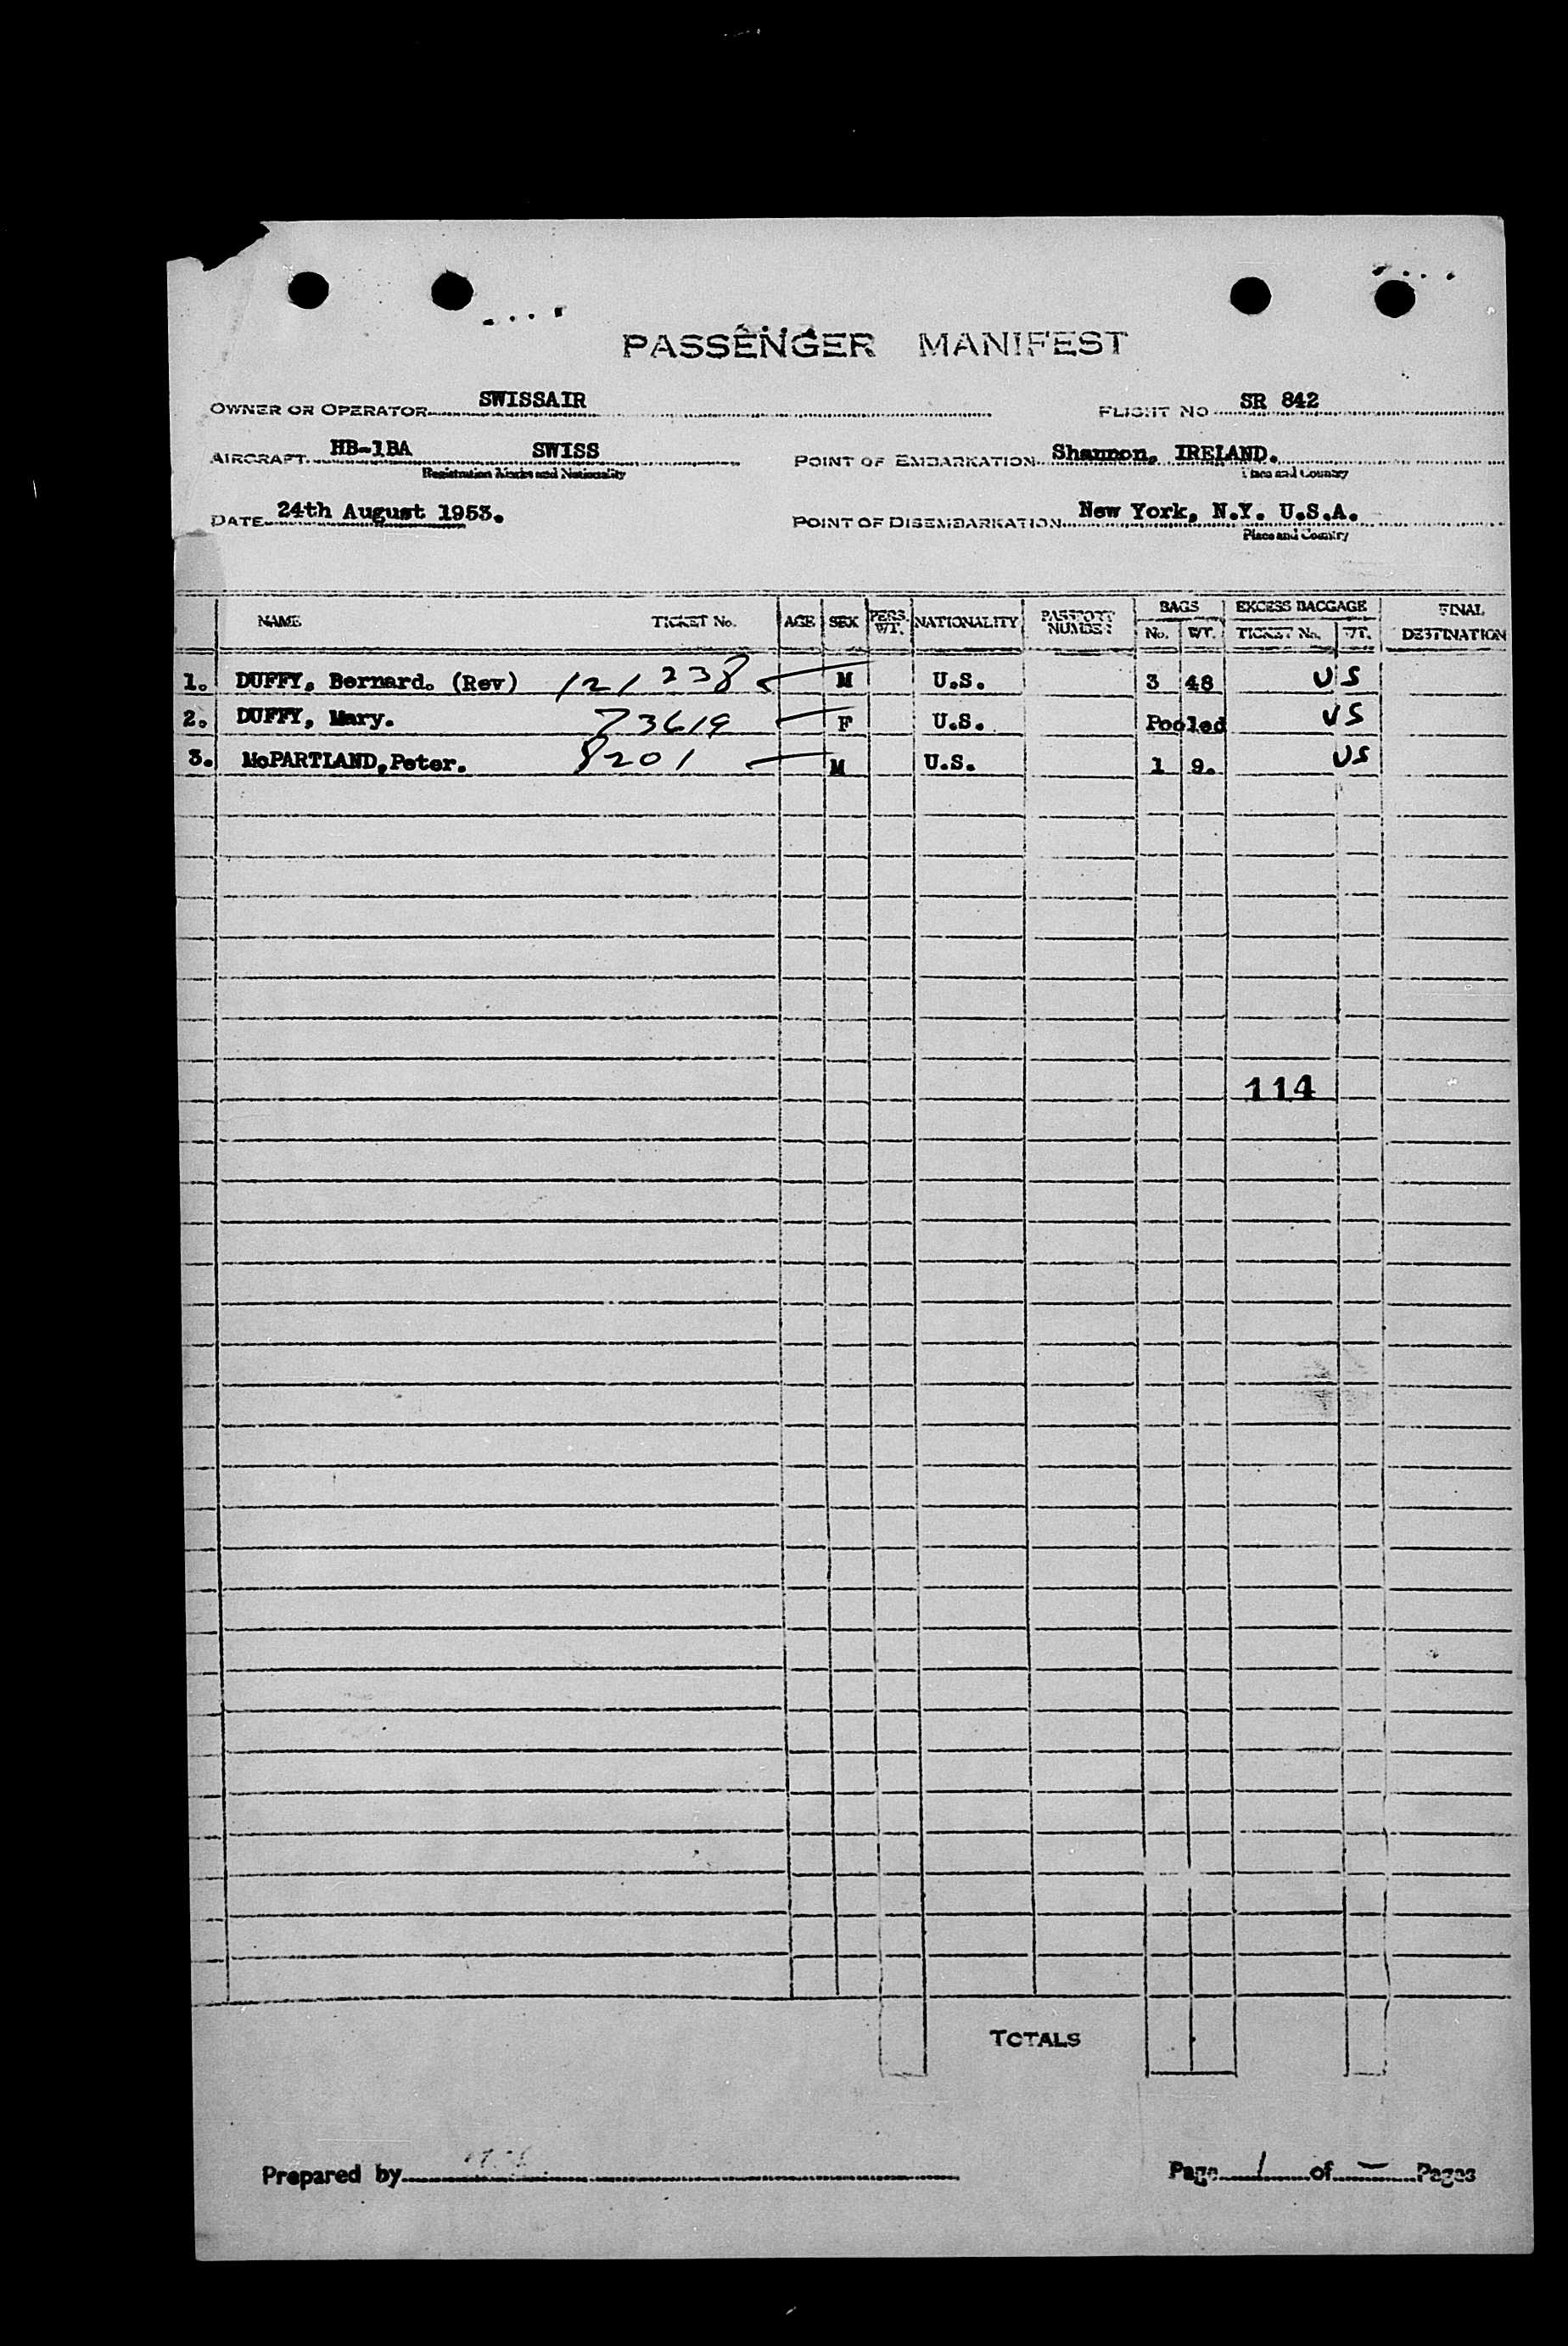 PASSENGER MANIFEST
OWNER OR OPERATOR SWISSAIR FLIGHT NO SR 842
AIRCRAFT HB-1BA SWISS POINT OF EMBARKATION Shannon, IRELAND.
Registration Marks and Nationality Place and Country
DATE 24th August 1953. POINT OF DISEMBARKATION New York, N.Y. U.S.A.
Place and Country
NAME TICKET No. AGE SEX PERS. WT. NATIONALITY PASSPORT NUMBER BAGS No. WT. EXCESS BAGGAGE TICKET No. WT. FINAL DESTINATION
1. DUFFY, Bernard. (Rev) 121 238 M U.S. 3 48 US
2. DUFFY, Mary. 73619 F U.S. Pooled US
3. McPARTLAND, Peter. 8201 M U.S. 1 9. US
114
TOTALS
Prepared by Page 1 of — Pages